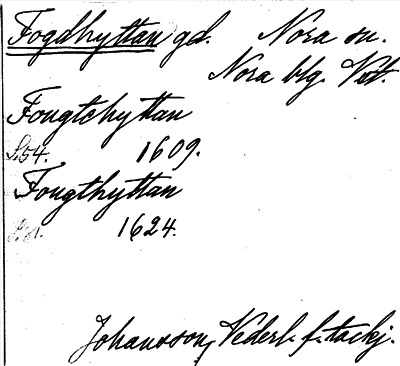 Fogdhyttan gd. Nora sn.
Nora blg. Vstl.
Fougtchyttan
S. 54. 1609.
Fougthyttan
1624.
Johansson, Nederl. f. tackj.